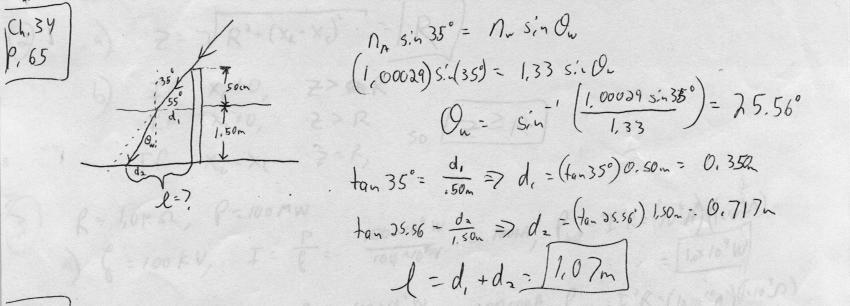 Ch. 34
P. 65
35°
55°
d₁
θw
d₂
50cm
1.50m
l = ?
n_A sin 35° = n_w sin θ_w
(1.00029) sin(35°) = 1.33 sin θ_w
θ_w = sin⁻¹ (1.00029 sin 35° / 1.33) = 25.56°
tan 35° = d₁ / .50m ⇒ d₁ = (tan 35°) 0.50m = 0.350m
tan 25.56 = d₂ / 1.50m ⇒ d₂ = (tan 25.56°) 1.50m = 0.717m
l = d₁ + d₂ = 1.07m